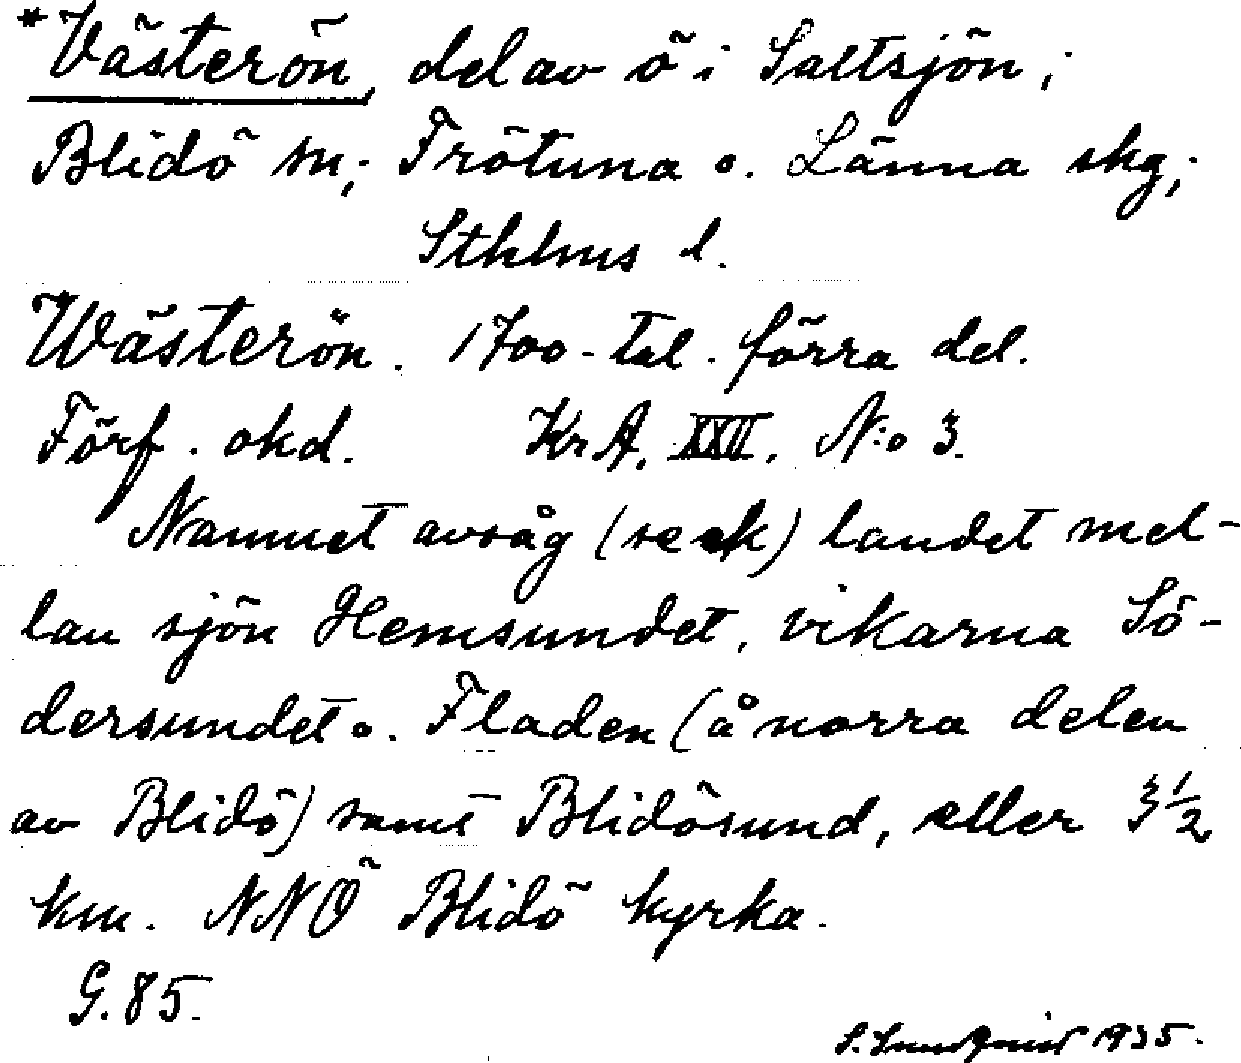 *Västerön, del av ö i Saltsjön;
Blidö sn; Frötuna o. Länna skg;
Sthlms l.
Wästerön. 1700-tal. förra del.
Förf. okd. KrA, XXII, N:o 3.
Namnet avsåg (se ek) landet mel-
lan sjön Hemsundet, vikarna Sö-
dersundet o. Fladen (å norra delen
av Blidö) samt Blidösund, eller 3 1/2
km. NNÖ Blidö kyrka.
G. 85.
S. Lundquist 1935.